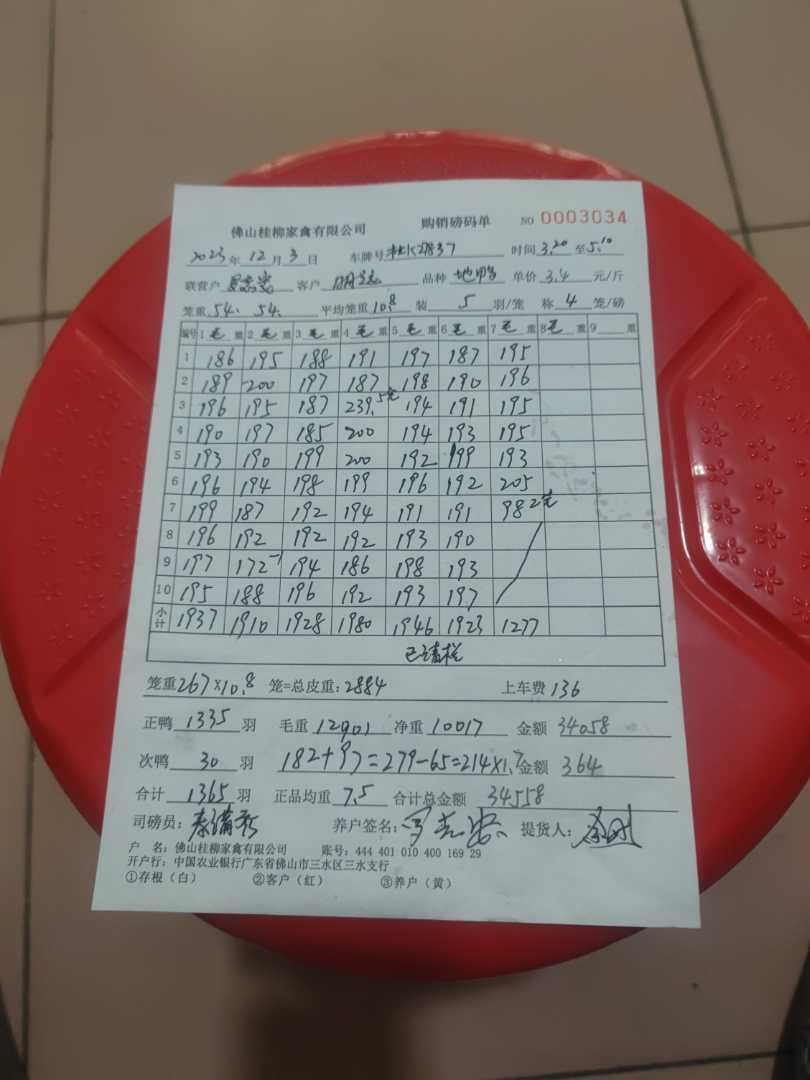 佛山桂柳家禽有限公司 购销磅码单 NO 0003034
2023年12月3日 车牌号 桂K2837 时间3.20至5.10
联营户 客户 品种 地鸭 单价 3.4 元/斤
笼重 54. 54. 平均笼重10.8 装 5 羽/笼 称 4 笼/磅
编号 1毛重 2毛重 3毛重 4毛重 5毛重 6毛重 7毛重 8毛重 9 重
1 186 195 188 191 197 187 195
2 189 200 197 187 198 190 196
3 196 195 187 239.5笼 194 191 195
4 190 197 185 200 194 193 195
5 193 190 199 200 192 199 193
6 196 194 198 199 196 192 205
7 199 187 192 194 191 191 98 2笼
8 196 192 192 192 193 190
9 197 172-1 194 186 198 193
10 195 188 196 192 193 197
小计 1937 1910 1928 1980 1946 1923 1277
已清栏
笼重267×10.8 笼=总皮重:2884 上车费 136
正鸭 1335 羽 毛重 12901 净重 10017 金额 34058
次鸭 30 羽 182+97=279-65=214×1.7 金额 364
合计 1365 羽 正品均重 7.5 合计总金额 34558
司磅员: 养户签名: 提货人:
户 名:佛山桂柳家禽有限公司 账号:444 401 010 400 169 29
开户行:中国农业银行广东省佛山市三水区三水支行
①存根(白) ②客户(红) ③养户(黄)